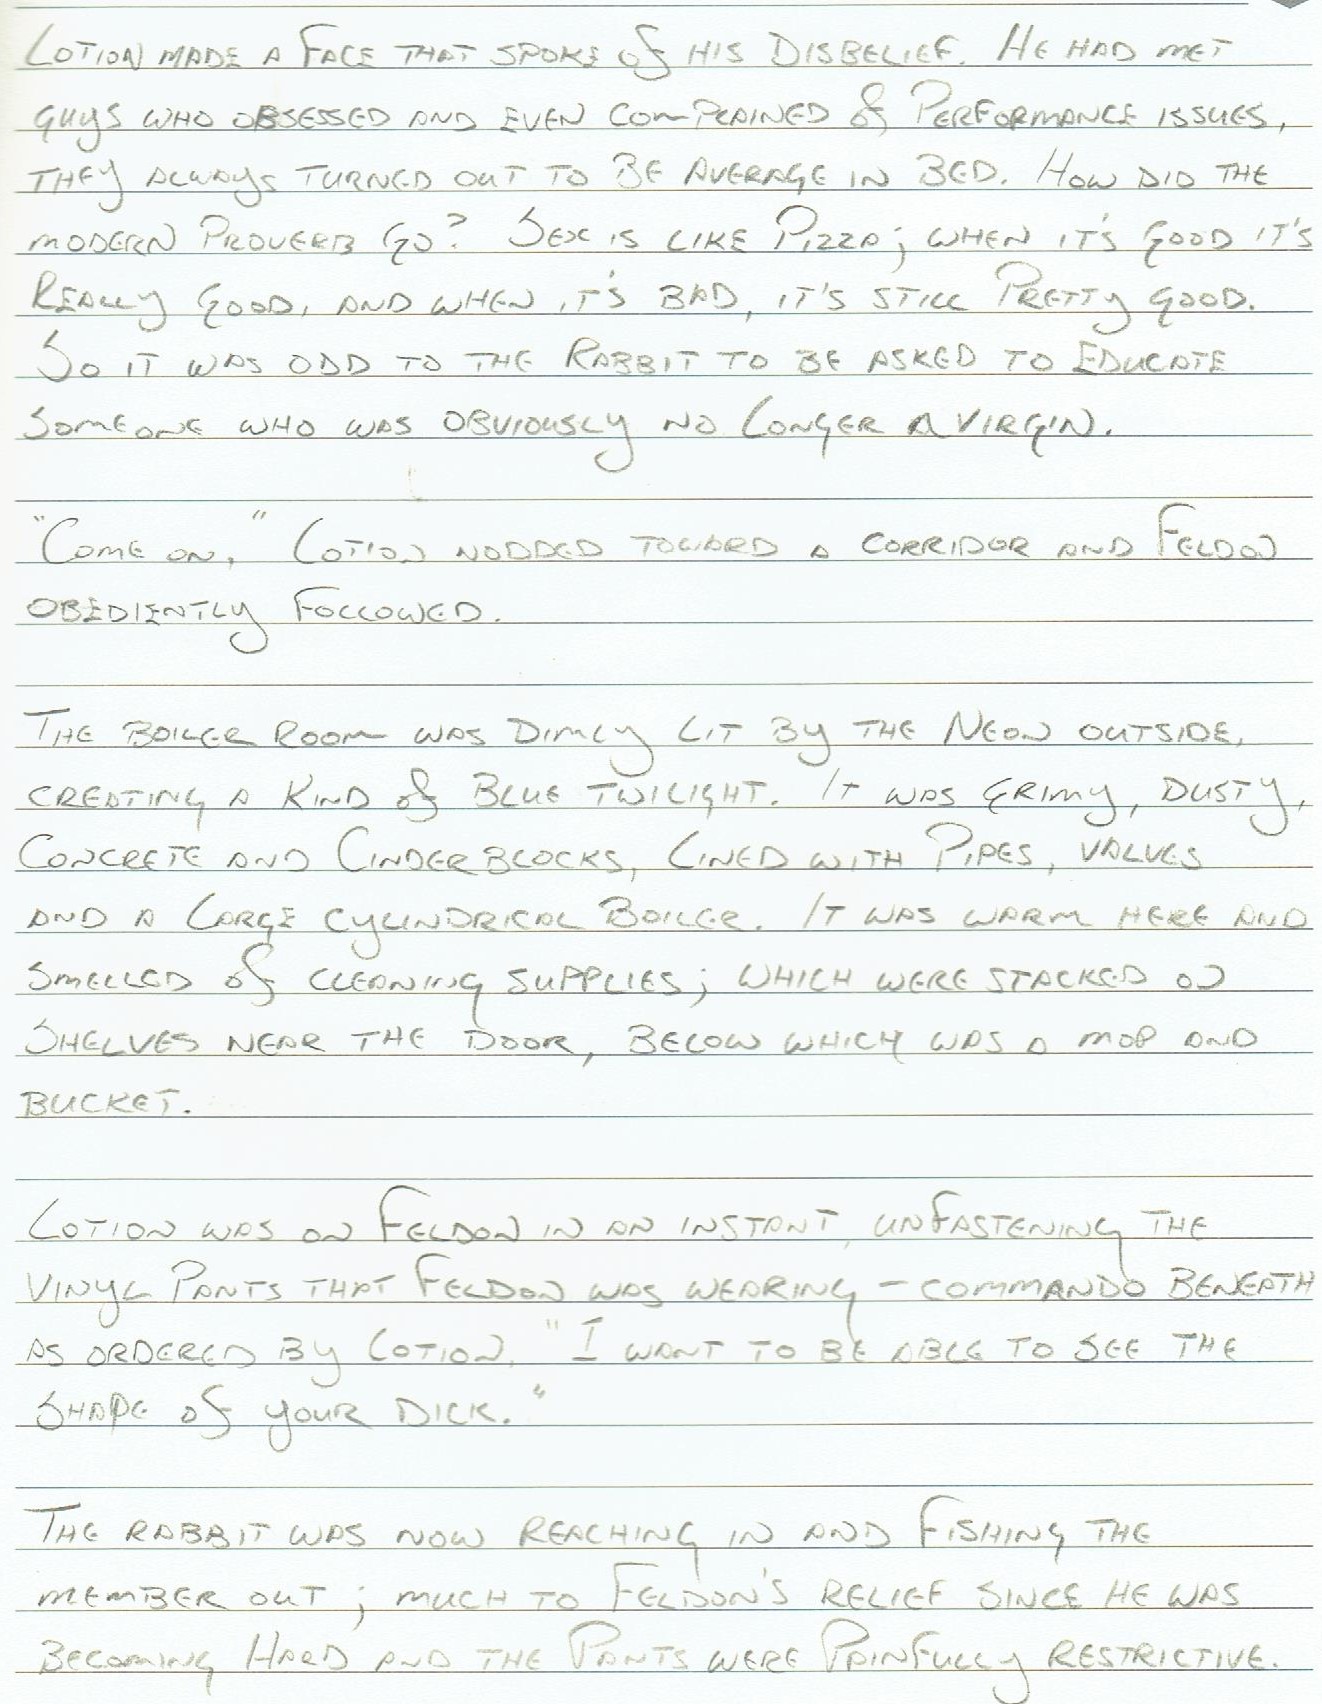 Lotion made a face that spoke of his disbelief. He had met
guys who obsessed and even complained of performance issues,
they always turned out to be average in bed. How did the
modern proverb go? Sex is like pizza; when it's good it's
really good, and when it's bad, it's still pretty good.
So it was odd to the rabbit to be asked to educate
someone who was obviously no longer a virgin.
"Come on," Lotion nodded toward a corridor and Feldon
obediently followed.
The boiler room was dimly lit by the neon outside,
creating a kind of blue twilight. It was grimy, dusty,
concrete and cinderblocks, lined with pipes, valves
and a large cylindrical boiler. It was warm here and
smelled of cleaning supplies; which were stacked on
shelves near the door, below which was a mop and
bucket.
Lotion was on Feldon in an instant, unfastening the
vinyl pants that Feldon was wearing - commando beneath
as ordered by Lotion. "I want to be able to see the
shape of your dick."
The rabbit was now reaching in and fishing the
member out; much to Feldon's relief since he was
becoming hard and the pants were painfully restrictive.